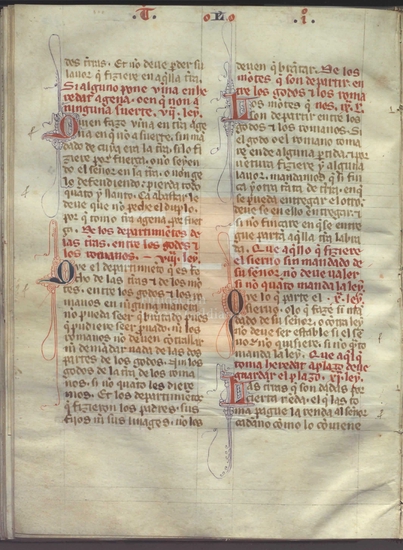 .T. oLo .i.
dos tr̃as. Et no deue ꝑder su
lauor q̃ fiziere en aq̃lla tr̃a.
Si alguno pone vina en he
redat agena. o en q̃ non a
ninguna suerte. vij. ley.
Quien faze vina en tr̃a age
na en q̃ no a suerte. sin mã
dado de cuya era la tr̃a. si lo fi
ziere por fuerça. o no seyen
do el señor en la tr̃a. o non ge
lo defendiendo. pierda todo
quanto y llanto. Ca abastar le
deue que no peche el duplo.
por q̃ tomo tr̃a agena por fuerça.
De los departimẽtos de
las tr̃as. entre los godos ⁊
los romanos. viij. ley.
Que el departimẽto q̃ es fe
cho de las tr̃as ⁊ de los mõ
tes. entre los godos ⁊ los ro
manos en ninguna manera
no pueda seer q̃brantado pues
que pudiere seer prouado. ni los
romanos no deuen tomar
ni demandar nada de las dos
partes de los godos. Ni los
godos de la tr̃a de los roma
nos. si no quanto les diere
mos. Et los departimẽtos
q̃ fizieron los padres. sus
fijos ni sus linages. no los
deuen q̃brantar. De los
mõtes q̃ son departir en
tre los godos ⁊ los roma
nos. ix. l.
Los mõtes q̃
son departir entre los
godos ⁊ los romanos. Si
el godo o el romano toma
re ende alguna partida. por
uentura fiziere y alguna
lauor. mandamos q̃ si fin
ca y otra tr̃a de mõte. en q̃
se pueda entregar el otro.
deue se en ello entregar. ⁊
si no fincare en q̃ se entre
gue parta aq̃lla tr̃a labra
da. Que aq̃llo q̃ fiziere
el sieruo sin mandado de
su señor. no deue ualer
si no quanto manda la ley.
Por lo q̃ parte el x. ley.
sieruo. o lo q̃ faze si mã
dado de su señor. o contra ley
no deue ser estable si el se
ñor no quisiere. si no q̃nto
manda la ley. Que aq̃l q̃
toma heredat a plazo deue
guardar el plazo. xj. ley.
Las tr̃as q̃ son dadas por
cierta rẽda. el q̃ las to
ma pague la renda al señor
cadano como lo conuiene